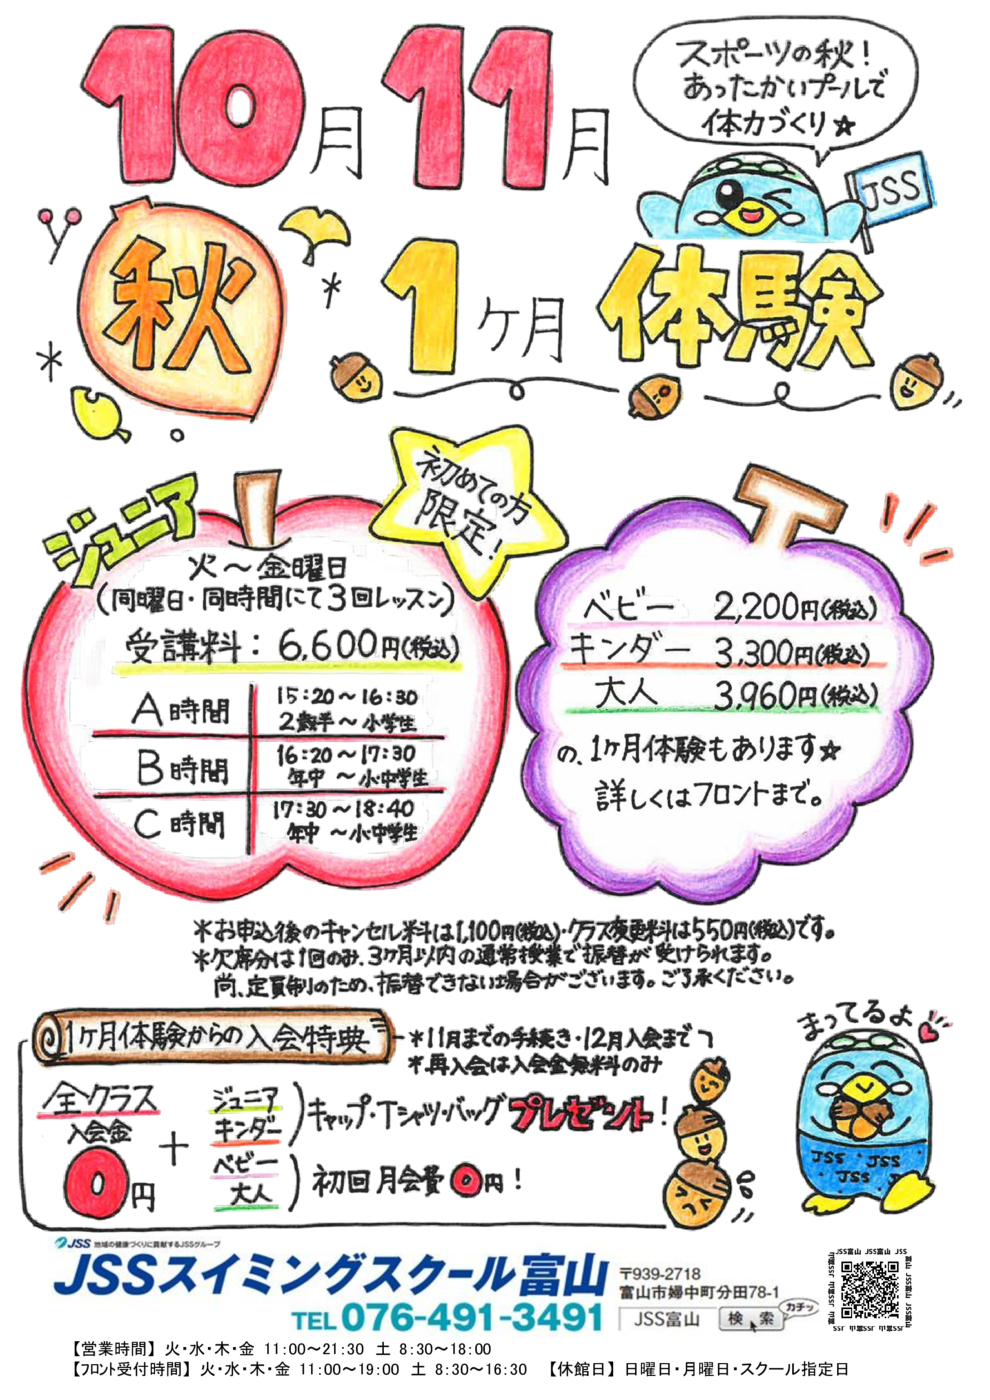 10月 11月
スポーツの秋!
あったかいプールで
体力づくり☆
JSS
秋
1ヶ月 体験
初めての方
限定!
ジュニア
火〜金曜日
(同曜日・同時間にて3回レッスン)
受講料: 6,600円(税込)
A時間 15:20〜16:30
2歳半〜小学生
B時間 16:20〜17:30
年中 〜小中学生
C時間 17:30〜18:40
年中 〜小中学生
ベビー 2,200円(税込)
キンダー 3,300円(税込)
大人 3,960円(税込)
の、1ヶ月体験もあります☆
詳しくはフロントまで。
*お申込後のキャンセル料は1,100円(税込)・クラス変更料は550円(税込)です。
*欠席分は1回のみ、3ヶ月以内の通常授業で振替が受けられます。
尚、定員制のため、振替できない場合がございます。ご了承ください。
1ヶ月体験からの入会特典
*11月までの手続き・12月入会まで
*再入会は入会金無料のみ
まってるよ
全クラス
入会金
0円
+
ジュニア
キンダー
キャップ・Tシャツ・バッグ プレゼント!
ベビー
大人
初回月会費0円!
JSS JSS
JSS JSS
JSS 地域の健康づくりに貢献するJSSグループ
JSSスイミングスクール富山
TEL 076-491-3491
〒939-2718
富山市婦中町分田78-1
JSS富山 検 索
カチッ
JSS富山 JSS富山 JSS
【営業時間】 火・水・木・金 11:00〜21:30 土 8:30〜18:00
【フロント受付時間】 火・水・木・金 11:00〜19:00 土 8:30〜16:30 【休館日】 日曜日・月曜日・スクール指定日